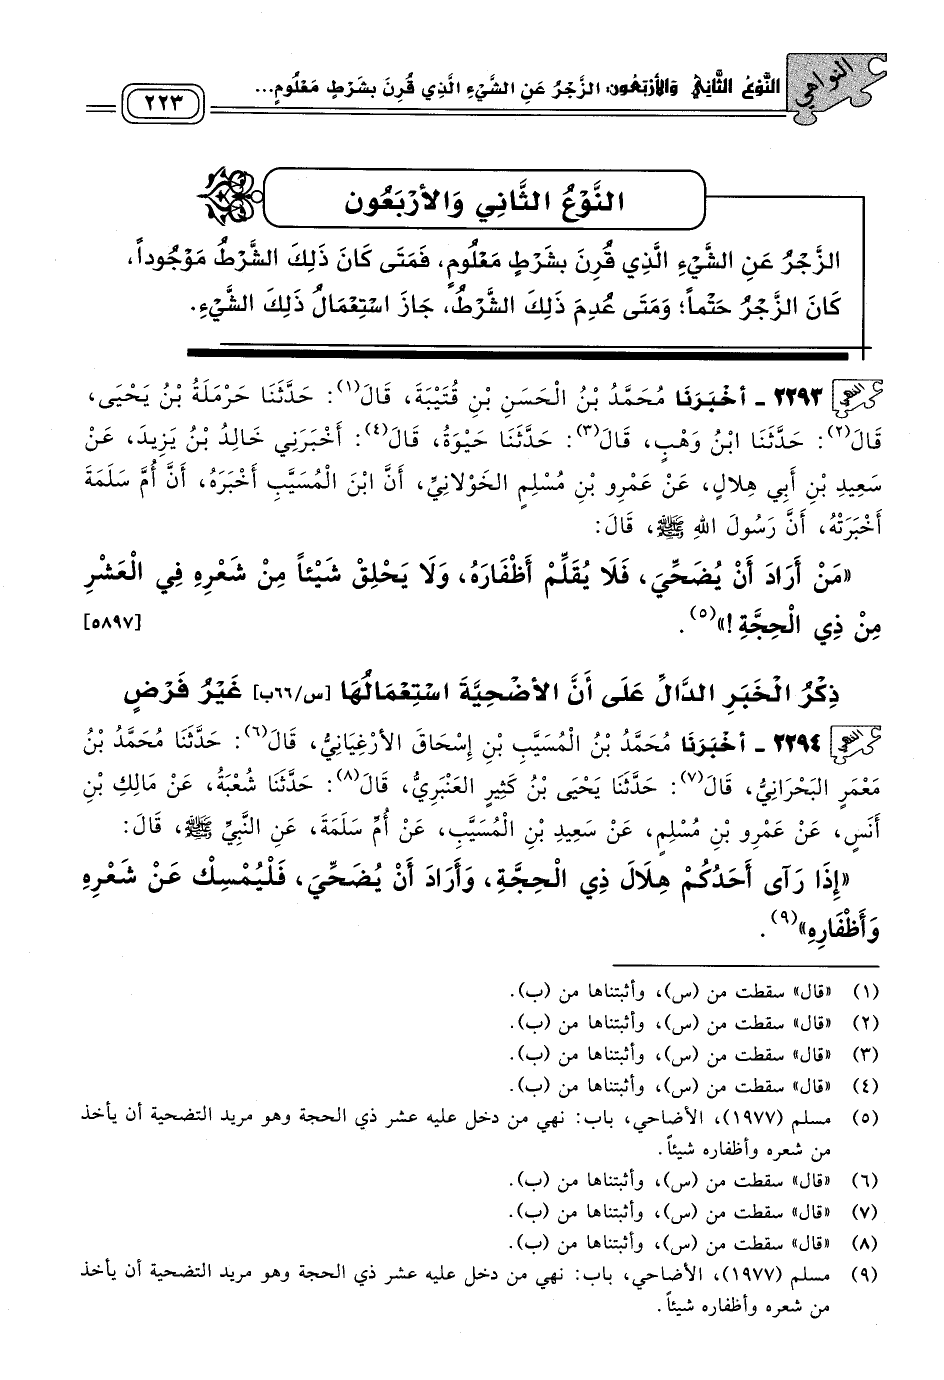 النواهي
النَّوْعُ الثَّانِي وَالأَرْبَعُون: الزَّجْرُ عَنِ الشَّيْءِ الَّذِي قُرِنَ بِشَرْطٍ مَعْلُومٍ...
٢٢٣
النَّوْعُ الثَّانِي وَالأَرْبَعُون
الزَّجْرُ عَنِ الشَّيْءِ الَّذِي قُرِنَ بِشَرْطٍ مَعْلُومٍ، فَمَتَى كَانَ ذَلِكَ الشَّرْطُ مَوْجُوداً،
كَانَ الزَّجْرُ حَتْماً؛ وَمَتَى عُدِمَ ذَلِكَ الشَّرْطُ، جَازَ اسْتِعْمَالُ ذَلِكَ الشَّيْءِ.
٢٢٩٣ - أَخْبَرَنَا مُحَمَّدُ بْنُ الْحَسَنِ بْنِ قُتَيْبَةَ، قَالَ(١): حَدَّثَنَا حَرْمَلَةُ بْنُ يَحْيَى،
قَالَ(٢): حَدَّثَنَا ابْنُ وَهْبٍ، قَالَ(٣): حَدَّثَنَا حَيْوَةُ، قَالَ(٤): أَخْبَرَنِي خَالِدُ بْنُ يَزِيدَ، عَنْ
سَعِيدِ بْنِ أَبِي هِلالٍ، عَنْ عَمْرِو بْنِ مُسْلِمٍ الخَوْلانِيِّ، أَنَّ ابْنَ الْمُسَيَّبِ أَخْبَرَهُ، أَنَّ أُمَّ سَلَمَةَ
أَخْبَرَتْهُ، أَنَّ رَسُولَ اللهِ ﷺ، قَالَ:
«مَنْ أَرَادَ أَنْ يُضَحِّيَ، فَلَا يُقَلِّمْ أَظْفَارَهُ، وَلَا يَحْلِقْ شَيْئاً مِنْ شَعْرِهِ فِي الْعَشْرِ
مِنْ ذِي الْحِجَّةِ!»(٥). [٥٨٩٧]
ذِكْرُ الْخَبَرِ الدَّالِّ عَلَى أَنَّ الأُضْحِيَّةَ اسْتِعْمَالُهَا [س/٦٦ب] غَيْرُ فَرْضٍ
٢٢٩٤ - أَخْبَرَنَا مُحَمَّدُ بْنُ الْمُسَيَّبِ بْنِ إِسْحَاقَ الأَرْغِيَانِيُّ، قَالَ(٦): حَدَّثَنَا مُحَمَّدُ بْنُ
مَعْمَرٍ البَحْرَانِيُّ، قَالَ(٧): حَدَّثَنَا يَحْيَى بْنُ كَثِيرٍ العَنْبَرِيُّ، قَالَ(٨): حَدَّثَنَا شُعْبَةُ، عَنْ مَالِكِ بْنِ
أَنَسٍ، عَنْ عَمْرِو بْنِ مُسْلِمٍ، عَنْ سَعِيدِ بْنِ الْمُسَيَّبِ، عَنْ أُمِّ سَلَمَةَ، عَنِ النَّبِيِّ ﷺ، قَالَ:
«إِذَا رَآى أَحَدُكُمْ هِلَالَ ذِي الْحِجَّةِ، وَأَرَادَ أَنْ يُضَحِّيَ، فَلْيُمْسِكْ عَنْ شَعْرِهِ
وَأَظْفَارِهِ»(٩).
(١) «قال» سقطت من (س)، وأثبتناها من (ب).
(٢) «قال» سقطت من (س)، وأثبتناها من (ب).
(٣) «قال» سقطت من (س)، وأثبتناها من (ب).
(٤) «قال» سقطت من (س)، وأثبتناها من (ب).
(٥) مسلم (١٩٧٧)، الأضاحي، باب: نهي من دخل عليه عشر ذي الحجة وهو مريد التضحية أن يأخذ
من شعره وأظفاره شيئاً.
(٦) «قال» سقطت من (س)، وأثبتناها من (ب).
(٧) «قال» سقطت من (س)، وأثبتناها من (ب).
(٨) «قال» سقطت من (س)، وأثبتناها من (ب).
(٩) مسلم (١٩٧٧)، الأضاحي، باب: نهي من دخل عليه عشر ذي الحجة وهو مريد التضحية أن يأخذ
من شعره وأظفاره شيئاً.